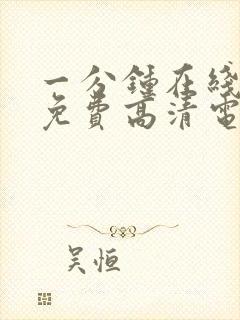 一分鍾在綫
免費高清電
吴恒